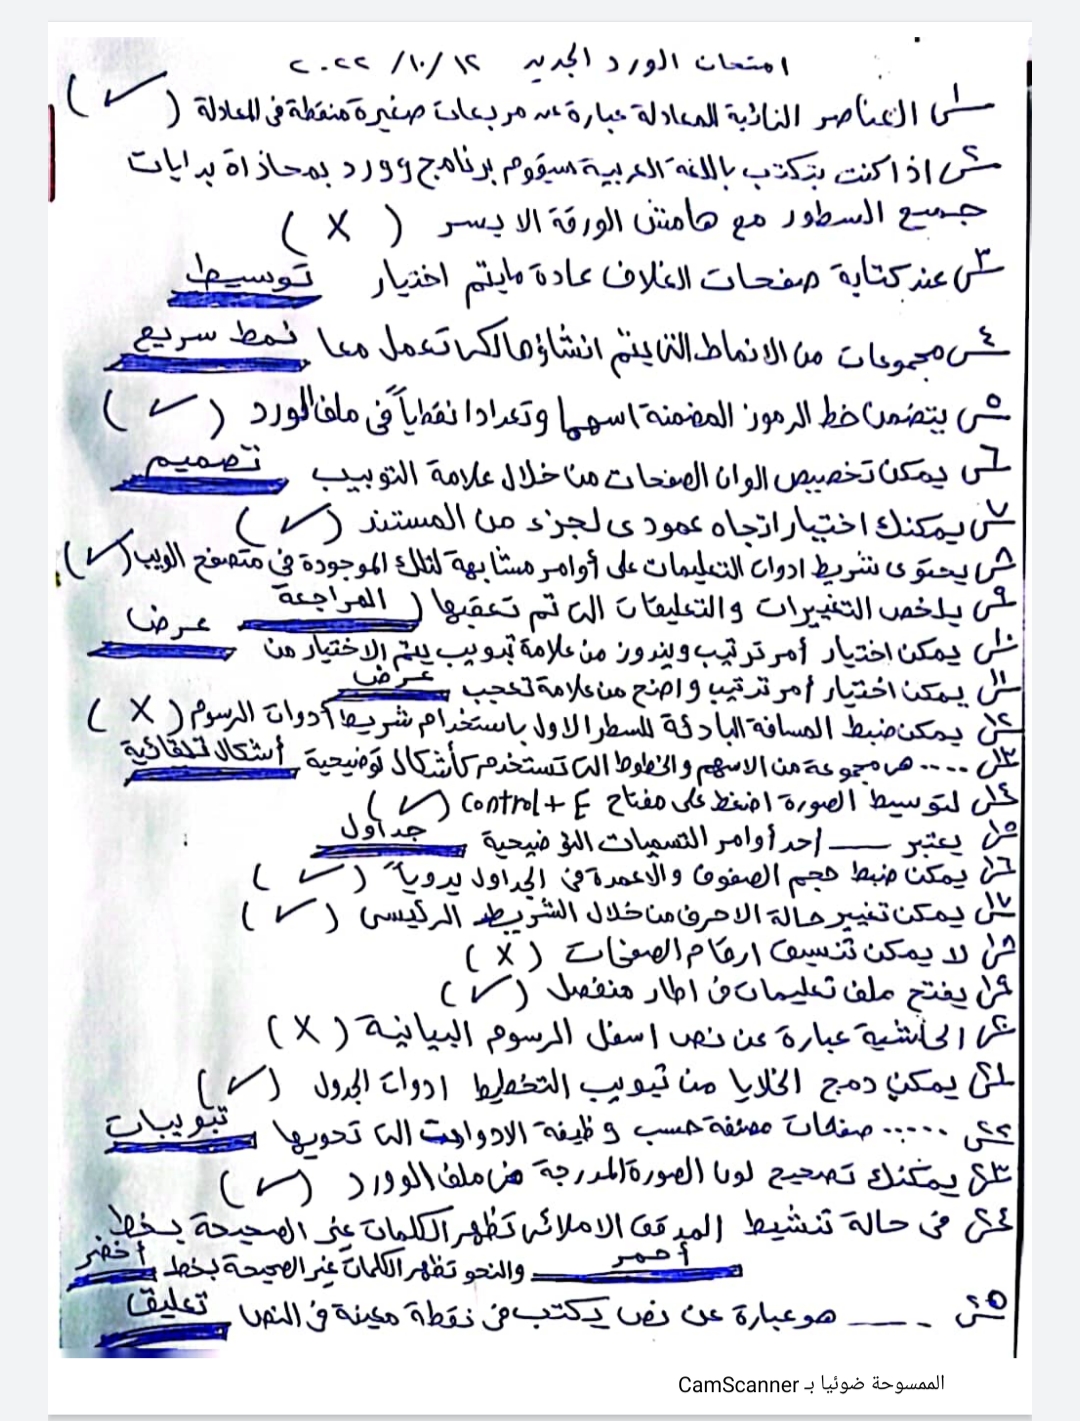 امتحان الورد الجديد ١٢/١٠/٢٠٢٢
س١ العناصر النائبة للمعادلة عبارة عن مربعات صغيرة منقطة فى المعادلة (✓)
س٢ اذا كنت تكتب باللغة العربية سيقوم برنامج وورد بمحاذاة بدايات
جميع السطور مع هامش الورقة الايسر (X)
س٣ عند كتابة صفحات الغلاف عادة مايتم اختيار توسيط
س٤ مجموعات من الانماط التى يتم انشاؤها لكى تعمل معا نمط سريع
س٥ يتضمن خط الرموز المضمنة اسهما وتعدادا نقطياً فى ملف الورد (✓)
س٦ يمكن تخصيص الوان الصفحات من خلال علامة التوبيب تصميم
س٧ يمكنك اختيار اتجاه عمودى لجزء من المستند (✓)
س٨ يحتوى شريط ادوات التعليمات على أوامر مشابهة لتلك الموجودة فى متصفح الويب (✓)
س٩ يلخص التغييرات والتعليقات التى تم تعقبها (المراجعة)
س١٠ يمكن اختيار أمر ترتيب ويندوز من علامة تبويب يتم الاختيار من عرض
س١١ يمكن اختيار أمر ترتيب واضح من علامة تعجب عرض
س١٢ يمكن ضبط المسافة البادئة للسطر الاول باستخدام شريط أدوات الرسوم (X)
س١٣ .... هى مجموعة من الاسهم والخطوط التى تستخدم كأشكال توضيحية أشكال تلقائية
س١٤ لتوسيط الصورة اضغط على مفتاح Control + E (✓)
س١٥ يعتبر ـــــ إحد أوامر التسميات التوضيحية جداول
س١٦ يمكن ضبط حجم الصفوف والاعمدة فى الجداول يدوياً (✓)
س١٧ يمكن تغيير حالة الاحرف من خلال الشريط الرئيسى (✓)
س١٨ لا يمكن تنسيق ارقام الصفحات (X)
س١٩ يفتح ملف تعليمات فى اطار منفصل (✓)
س٢٠ الحاشية عبارة عن نص اسفل الرسوم البيانية (X)
س٢١ يمكن دمج الخلايا من تبويب التخطيط ادوات الجدول (✓)
س٢٢ ..... صفحات مصنفة حسب وظيفة الادوات التى تحويها تبويبات
س٢٣ يمكنك تصحيح لون الصورة المدرجة فى ملف الوورد (✓)
س٢٤ فى حالة تنشيط المدقق الاملائى تظهر الكلمات غير الصحيحة بخط
أحمر والنحو تظهر الكلمات غير الصحيحة بخط أخضر
س٢٥ ـــــ هو عبارة عن نص يكتب فى نقطة معينة فى النص تعليق
الممسوحة ضوئيا بـ CamScanner